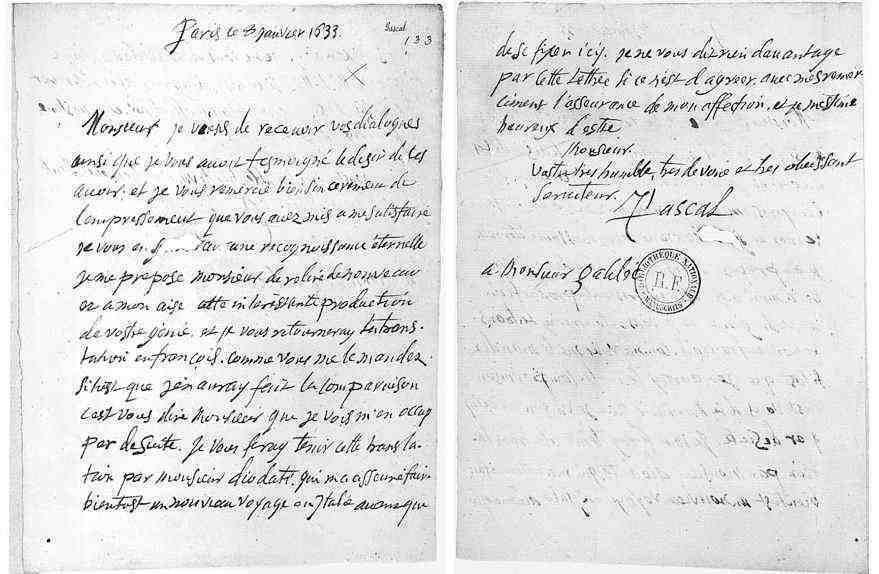 Paris ce 8 janvier 1633.
Pascal
133
Monsieur je viens de recevoir vos dialogues
ainsi que je vous avois tesmoigne le desir de les
avoir. et je vous remercie bien sincerement de
l'empressement que vous avez mis a me satisfaire
je vous en une recognoissance éternelle
je me propose monsieur de relire de nouveau
et a mon aise cette interessante production
de vostre génie. et je vous retourneray la trans-
lation en françois. comme vous me le mandez.
sitost que j'en auray fait la comparaison
c'est vous dire Monsieur que je vois m'en occup
per de suite. Je vous feray tenir cette transla-
tion par monsieur diodati. qui m'a asseuré faire
bientost un nouveau voyage en Italie avant que
de se fixer icy. je ne vous diz rien davantage
par cette lettre si ce n'est d'agreer. avec mes remer-
ciment l'asseurance de mon affection. et je m'estime
heureux d'estre.
Monsieur.
Vostre tres humble, tres devoué et tres obeissant
serviteur.
Pascal
a Monsieur galilée
BIBLIOTHÈQUE NATIONALE
R.F.
MANUSCRITS